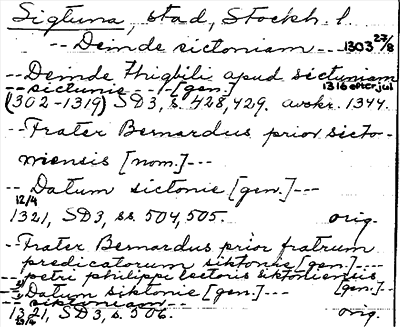 Sigtuna, stad, Stockh. l.
-- Deinde sictoniam --- 1303 27/8
-- Deinde thigbili apud sictuniam
-- sictunie --- [gen.] 1316 efter jul
(1302-1319) SD3, s. 428, 429. avskr. 1344.
-- Frater Bernardus prior sicto-
niensis [nom.] ---
-- Datum sictonie [gen.] ---
12/4
1321, SD3, ss. 504, 505. orig.
-- Frater Bernardus prior fratrum
predicatorum siktonie [gen.] ---
-- petri philippi lectoris siktoniensis
-- Datum siktonie [gen.] --- [gen.] --
-- siktoniam --
1321, SD3, s. 506. orig.